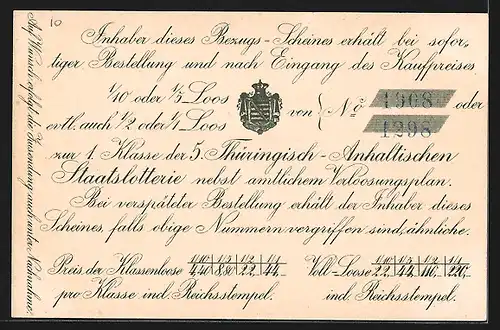 10
Inhaber dieses Bezugs-Scheines erhält bei sofor-
tiger Bestellung und nach Eingang des Kaufpreises
1/10 oder 1/5 Loos
evtl. auch 1/2 oder 1/1 Loos von No 1968 oder
1298
zur 1. Klasse der 5. Thüringisch-Anhaltischen
Staatslotterie nebst amtlichem Verloosungsplan.
Bei verspäteter Bestellung erhält der Inhaber dieses
Scheines falls obige Nummern vergriffen sind, ähnliche.
Preis der Klassenloose 1/10 1/5 1/2 1/1 Voll-Loose 1/10 1/5 1/2 1/1
4,40 8,8 22,- 44,- 22,- 44,- 110,- 220,-
pro Klasse incl. Reichsstempel. incl. Reichsstempel.
Auf Wunsch erfolgt die Zusendung auch unter Nachnahme.